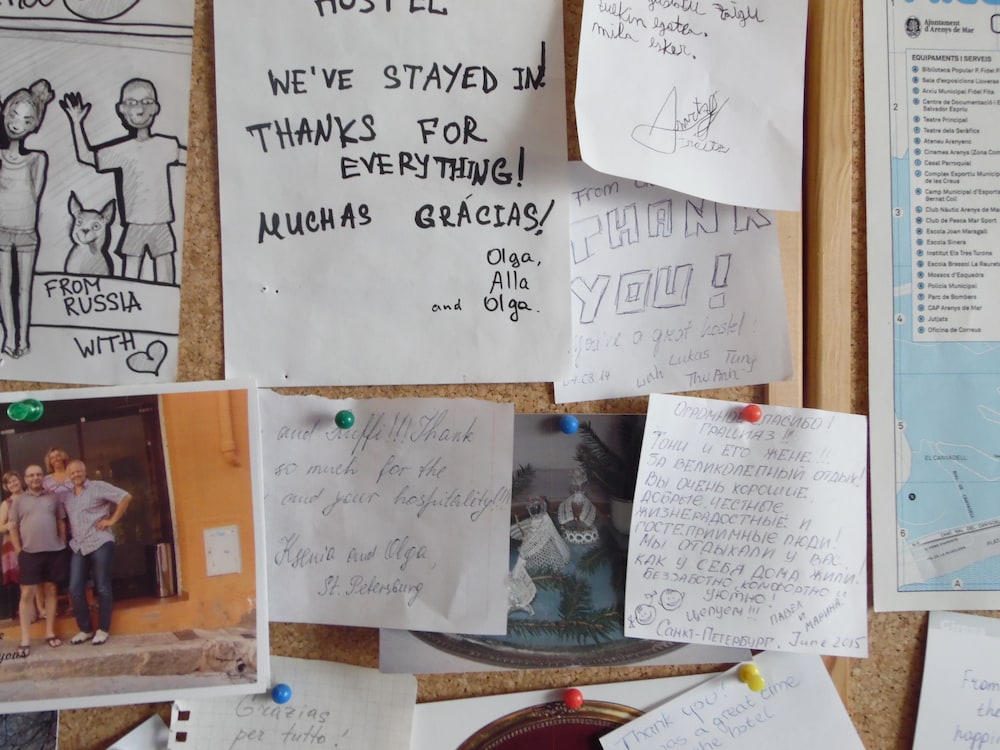 FROM
RUSSIA
WITH
HOSTEL
WE'VE STAYED IN!
THANKS FOR
EVERYTHING!
MUCHAS GRÁCIAS!
Olga,
Alla
and Olga.
mila esker.
From
THANK
YOU!
You're a great hostel!
Linh Lukas Tung
Thu Anh
and Zuffi!!! Thank
so much for the
and your hospitality!!!
Ksenia and Olga,
St. Petersburg
ОГРОМНОЕ СПАСИБО!
ГРАЦИАЗ!!
ТОНИ И ЕГО ЖЕНЕ!!
ЗА ВЕЛИКОЛЕПНЫЙ ОТДЫХ!
ВЫ ОЧЕНЬ ХОРОШИЕ,
ДОБРЫЕ, ЧЕСТНЫЕ,
ЖИЗНЕРАДОСТНЫЕ И
ГОСТЕПРИИМНЫЕ ЛЮДИ!
МЫ ОТДЫХАЛИ У ВАС,
КАК У СЕБЯ ДОМА ЖИЛИ!
БЕЗЗАБОТНО, КОМФОРТНО И
УЮТНО!
ЦЕЛУЕМ!!! ПАВЕЛ
И
МАРИНА
САНКТ-ПЕТЕРБУРГ, June 2015
Ajuntament
d'Arenys de Mar
EQUIPAMENTS I SERVEIS
Biblioteca Popular P. Fidel F
Sala d'exposicions Lloveras
Arxiu Municipal Fidel Fita
Centre de Documentació i E
Salvador Espriu
Teatre Principal
Teatre dels Seràfics
Ateneu Arenyenc
Cinemes Arenys (Zona Com
Casal Parroquial
Complex Esportiu Municip
de les Creus
Camp Municipal d'Esports
Bernat Coll
Club Nàutic Arenys de Ma
Club de Pesca Mar Sport
Escola Joan Maragall
Escola Sinera
Institut Els Tres Turons
Escola Bressol La Rauret
Mossos d'Esquadra
Policia Municipal
Parc de Bombers
CAP Arenys de Mar
Jutjats
Oficina de Correus
2
3
4
5
6
EL CANGADELL
A
Grazias
per tutto!
Thank you!
was a great time
the hostel
From
the
happi